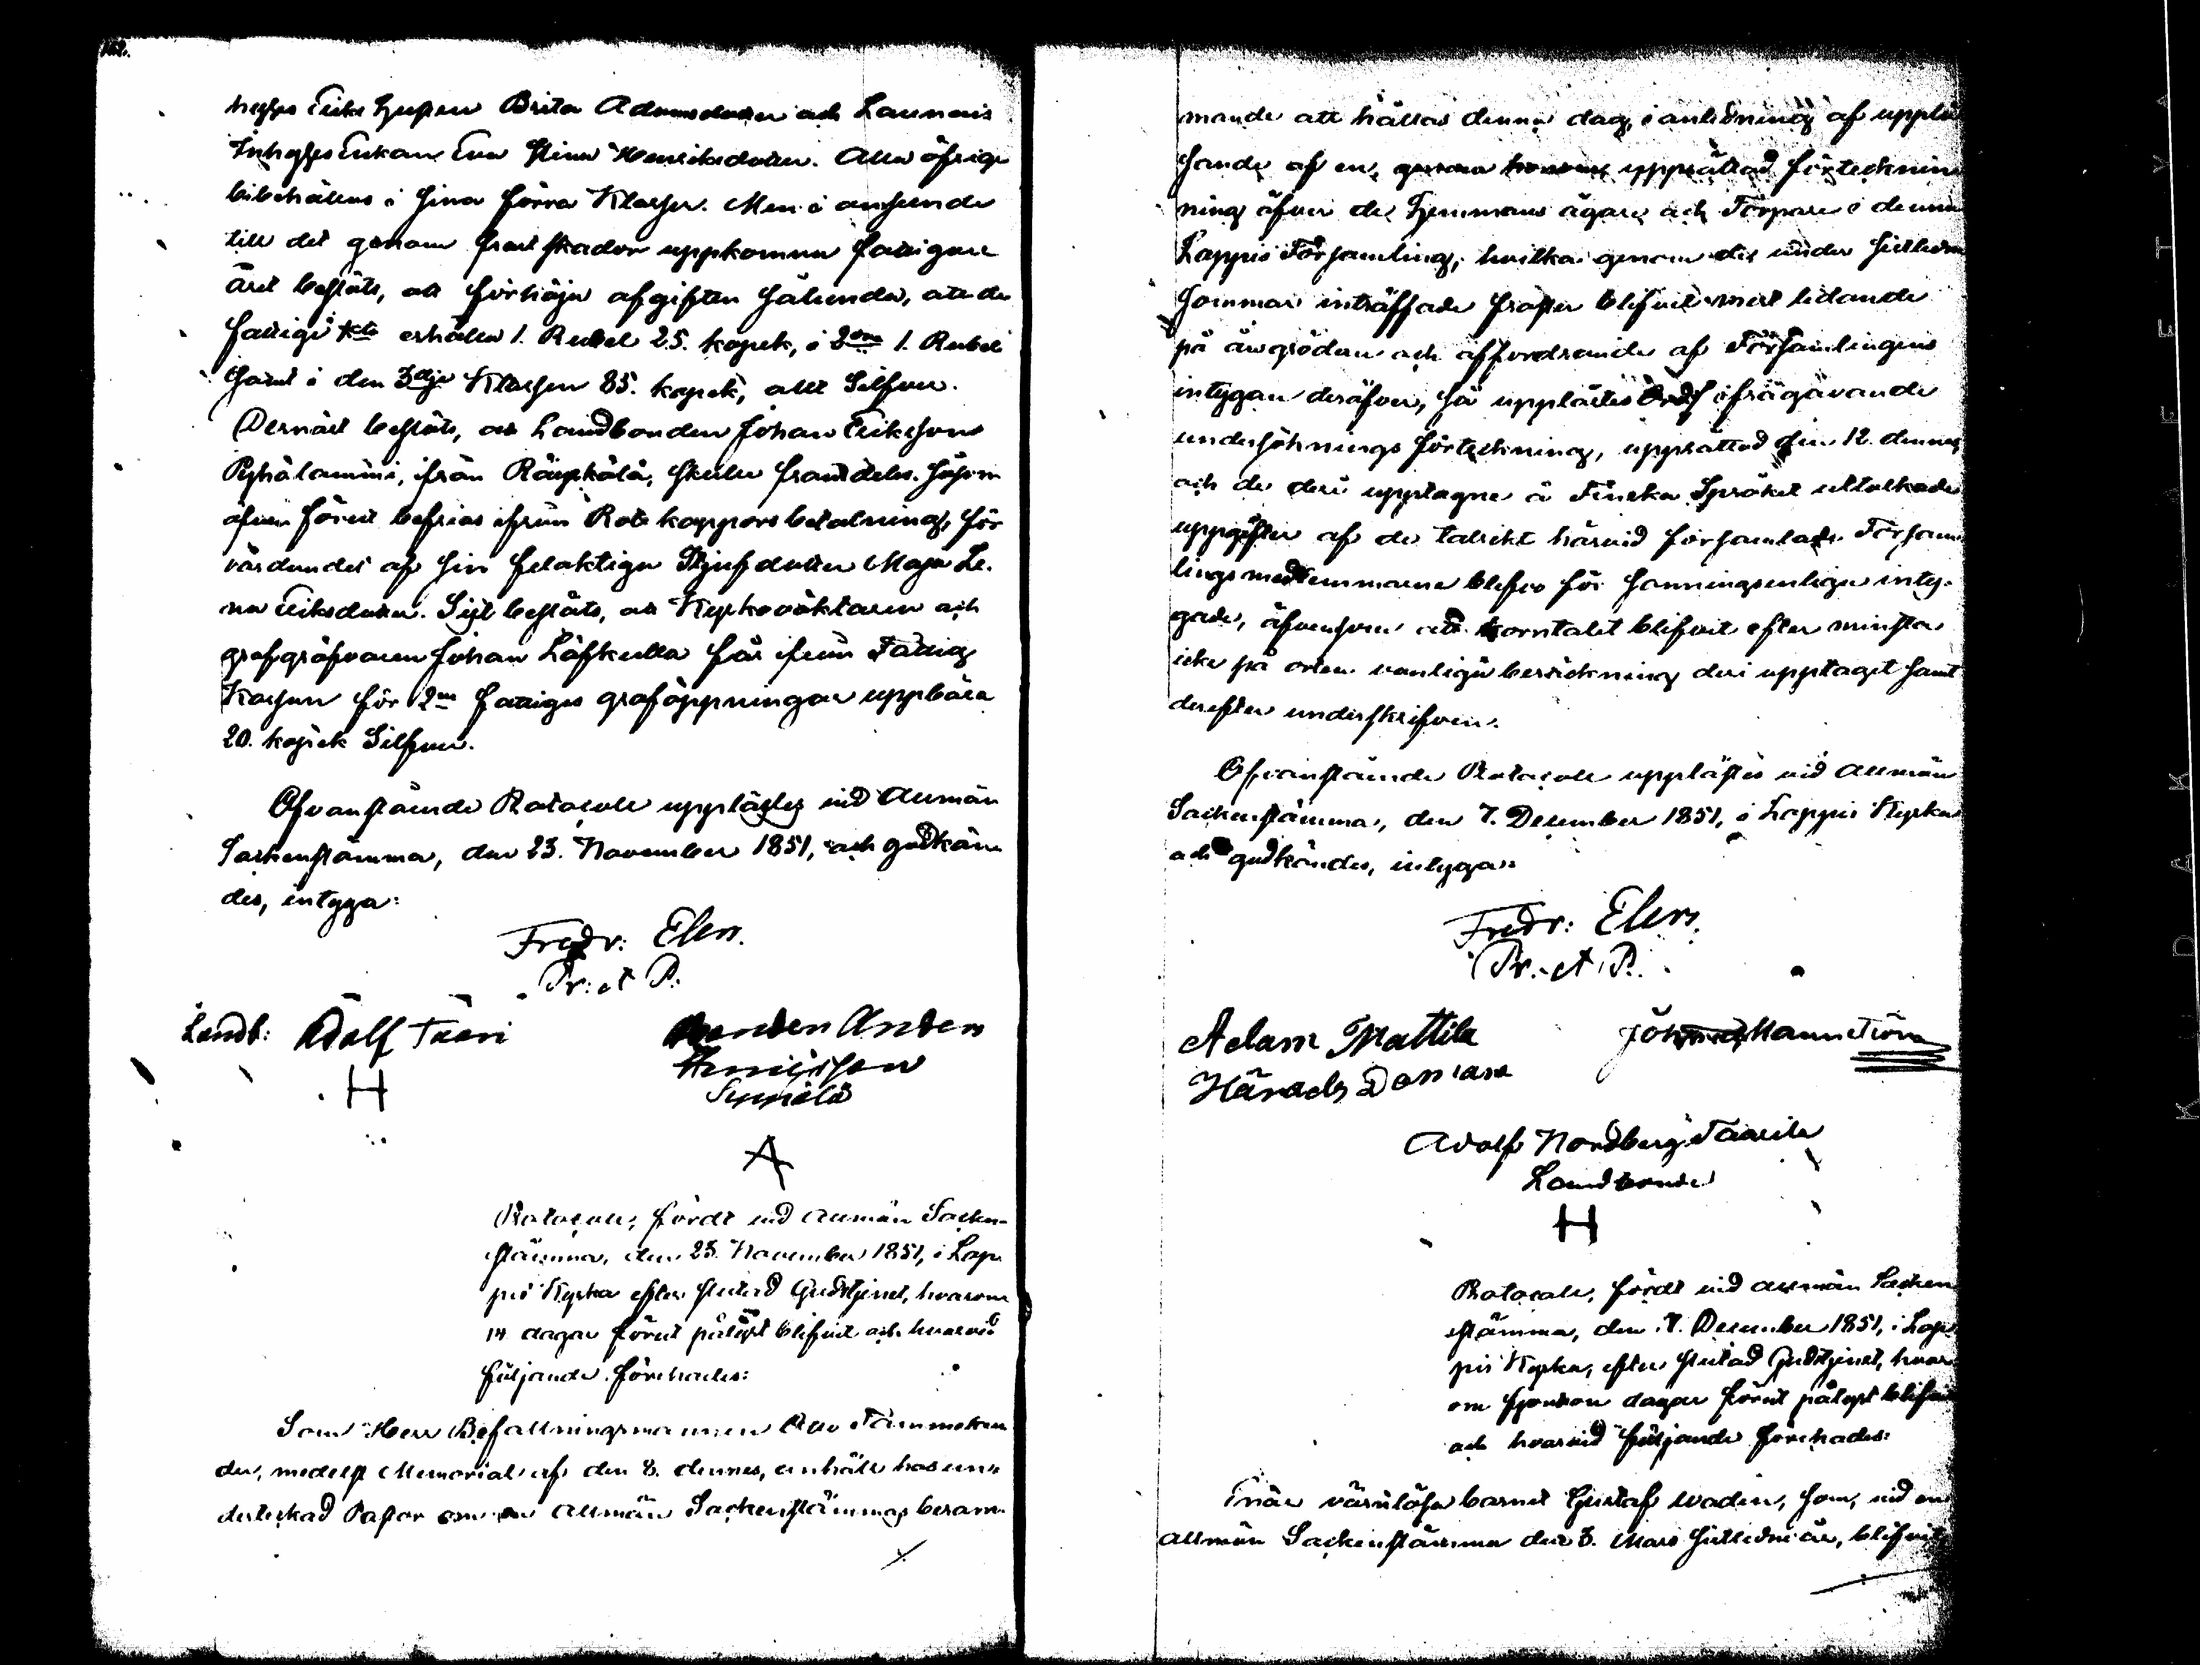 162.
Eriks Hustru Brita Adamsdotter och Launais
Inhyses Enkan Eva Stina Henriksdotter. Alla öfrige
bibehållas i sina förra Klasser. Men i anseende
till det genom frost skador uppkomna fattigare
året beslöts, att förhöja afgiften sålunda, att de
fattige erhålla 1. Rubel 25. kopek, i 2dra 1. Rubel
samt i den 3dje Klassen 85. kopek, allt Silfver.
Dernäst beslöts, att Landbonden Johan Eriksson
från skulle framdeles såsom
äfven förut befrias ifrån Rote kappors betalning, för
vårdandet af sin felaktiga Stjufdotter Maja Le-
na Eriksdotter. Sist beslöts, att Kyrkoväktaren och
grafgräfvaren Johan Löfkulla får ifrån Fattig
Kassan för 2ne fattiges graföppningar uppbära
20. kopek Silfver.
Ofvanstående Protocoll upplästes vid Allmän
Sockenstämma, den 23. November 1851, och godkän-
des, intyga:
Fredr: Elers.
Pr: et P.
Landb: Adolf Taari
H
Bonden Anders
Henriksson
Seppälä
A
Protocoll, fördt vid allmän Socken-
stämma, den 23. November 1851, i Lap-
pis Kyrka efter slutad Gudstjenst, hvarom
14 dagar förut pålyst blifvit och hvarvid
följande förehades:
Som Herr Befallningsmannen Tammelan-
der, medelst Memorial af den 8. dennes, anhållt hos un-
dertecknad Pastor om en allmän Sockenstämmas beram-
mande att hållas denna dag, i anledning af upplä-
sande af en, upprättad förtecknin-
ning öfver de Hemmans ägare och Torpare i denna
Lappis Församling, hvilka genom de under sistledne
sommar inträffade froster blifvit mest lidande
på årsgrödan och affordrande af Församlingens
intygan deröfver, så upplästes ifrågavarande
undersöknings förteckning, upprättad den 12. dennes
och de deri upptagne å Finska Språket uttolkade
uppgifter af de talrikt härvid församlade Försam-
lings medlemmarne blefvo för sanningsenliga inty-
gade, äfvensom att korntalet blifvit efter minsta
icke på orten vanliga beräkning deri upptaget samt
derefter underskrifven.
Ofvanstående Protocoll upplästes vid allmän
Sockenstämma, den 7. December 1851, i Lappis Kyrka
och godkändes, intygas
Fredr: Elers.
Pr. et P.
Adam Mattila
Härads Domare
Adolf Nordberg Taarila
Landbonde
H
Protocoll, fördt vid allmän Socken-
stämma, den 7. December 1851, i Lap-
pis Kyrka, efter slutad Gudstjenst, hvar-
om fjorton dagar förut pålyst blifvit
och hvarvid följande förehades:
Enär värnlösa barnet Gustaf Wadén, som, vid en
allmän Sockenstämma den 3. Mars sistledne år, blifvit